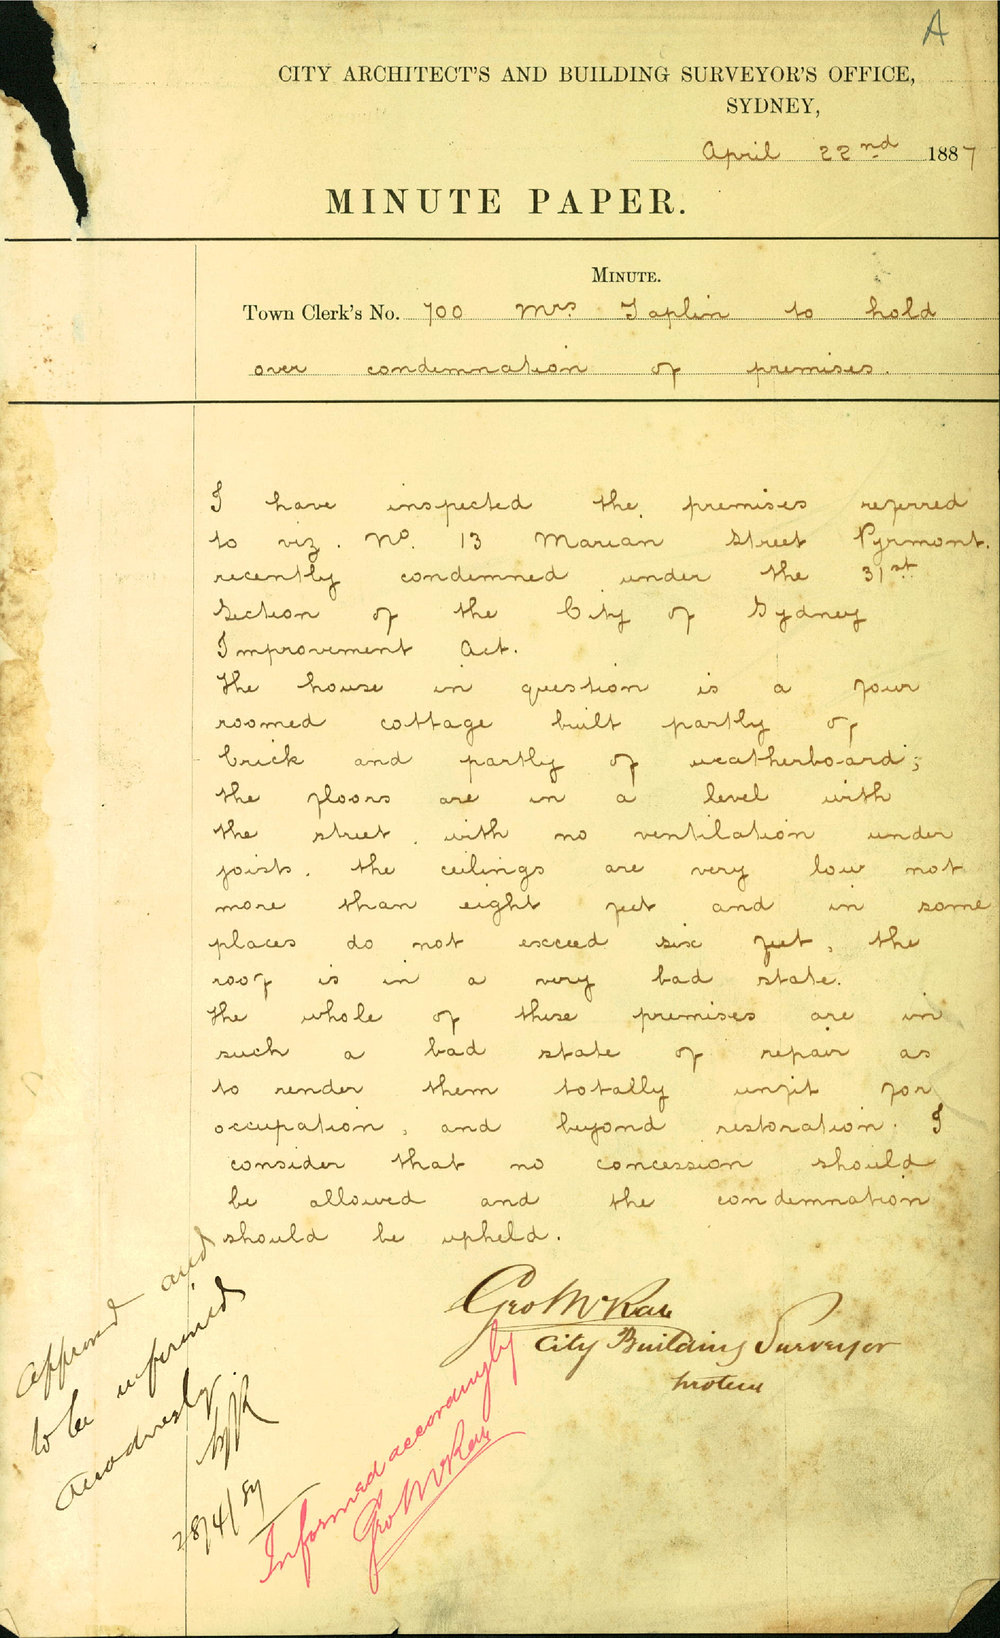 A
CITY ARCHITECT'S AND BUILDING SURVEYOR'S OFFICE,
SYDNEY,
April 22nd 1887
MINUTE PAPER.
MINUTE.
Town Clerk's No. 700 Mrs. Taplin to hold
over condemnation of premises.
I have inspected the premises referred
to viz. No. 13 Marian Street Pyrmont.
recently condemned under the 31st
Section of the City of Sydney
Improvement Act.
The house in question is a four
roomed cottage built partly of
brick and partly of weatherboard;
the floors are in a level with
the street, with no ventilation under
joists. the ceilings are very low not
more than eight feet and in some
places do not exceed six feet, the
roof is in a very bad state.
The whole of these premises are in
such a bad state of repair as
to render them totally unfit for
occupation, and beyond restoration. I
consider that no concession should
be allowed and the condemnation
should be upheld.
Geo McRae
City Building Surveyor
protem
Approved and
to be informed
28/4/87
Informed accordingly
Geo McRae